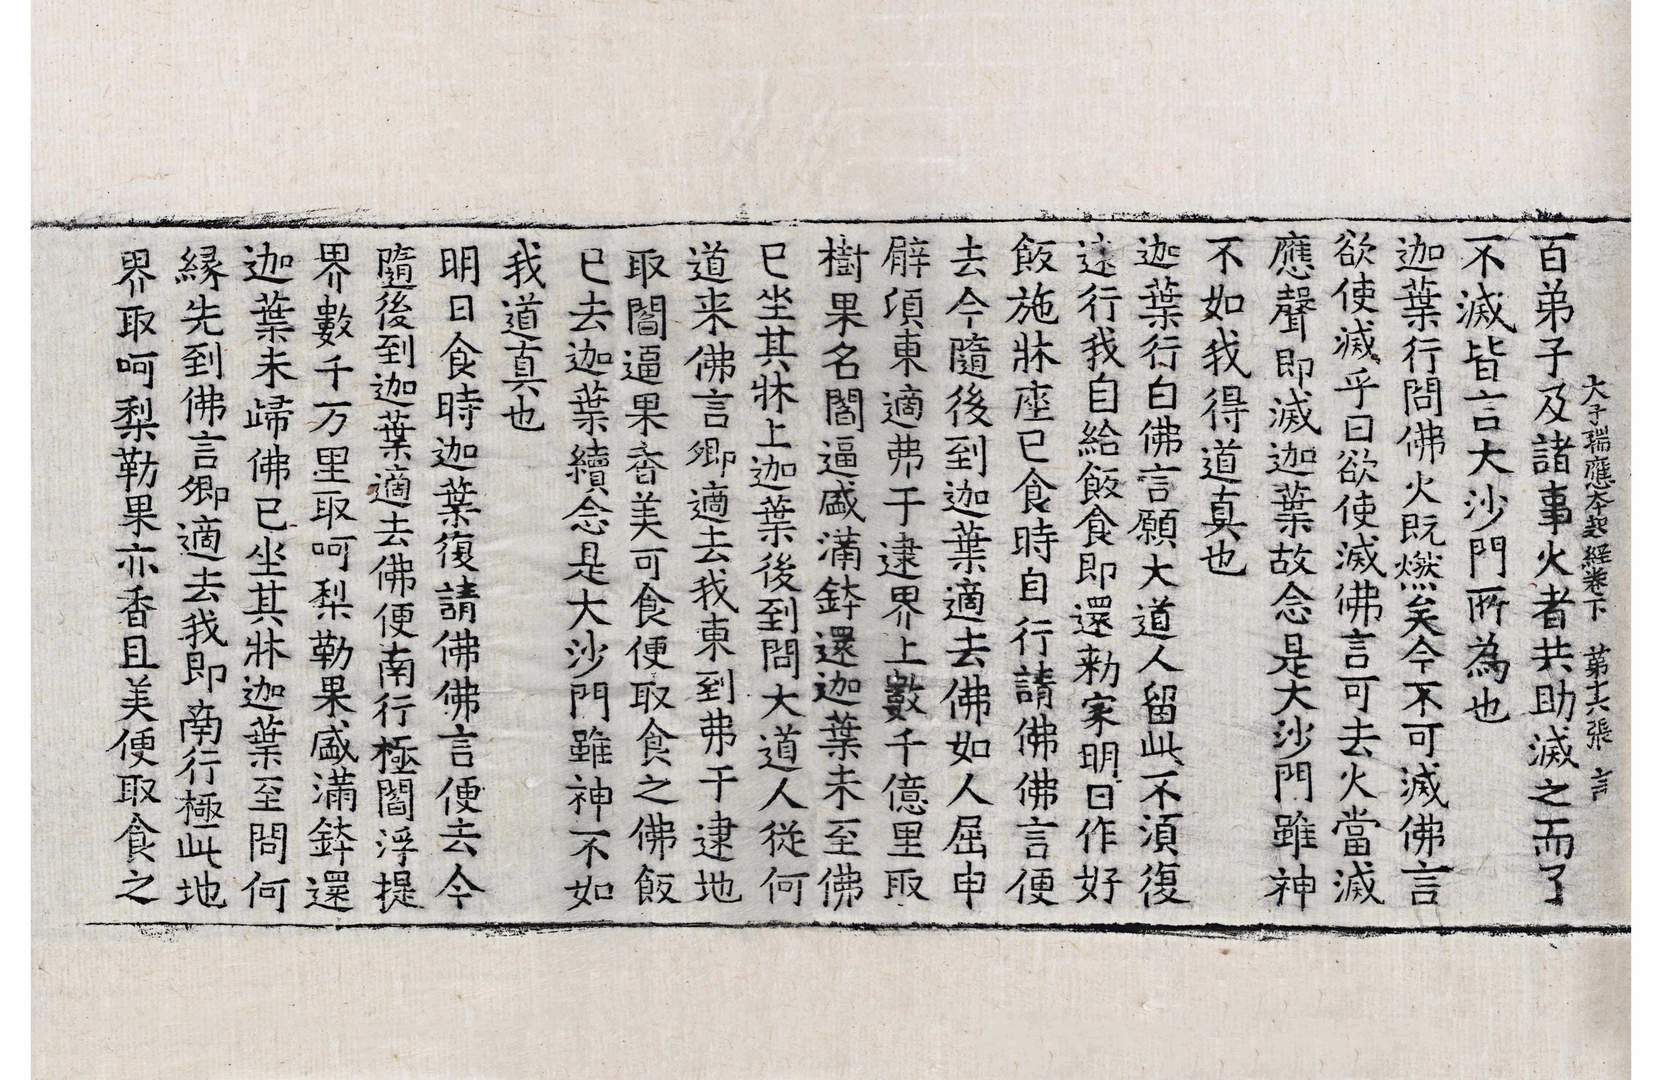 太子瑞應本起經卷下　第十六張　言
百弟子及諸事火者共助滅之而了
不滅皆言大沙門所為也
迦葉行問佛火既燃矣今不可滅佛言
欲使滅乎曰欲使滅佛言可去火當滅
應聲即滅迦葉故念是大沙門雖神
不如我得道真也
迦葉行白佛言願大道人留此不須復
遠行我自給飯食即還勑家明日作好
飯施牀座已食時自行請佛佛言便
去今隨後到迦葉適去佛如人屈申
臂頃東適弗于逮界上數千億里取
樹果名閻逼盛滿鉢還迦葉未至佛
已坐其牀上迦葉後到問大道人從何
道来佛言卿適去我東到弗于逮地
取閻逼果香美可食便取食之佛飯
已去迦葉續念是大沙門雖神不如
我道真也
明日食時迦葉復請佛佛言便去今
隨後到迦葉適去佛便南行極閻浮提
界數千万里取呵梨勒果盛滿鉢還
迦葉未歸佛已坐其牀迦葉至問何
緣先到佛言卿適去我即南行極此地
界取呵梨勒果亦香且美便取食之